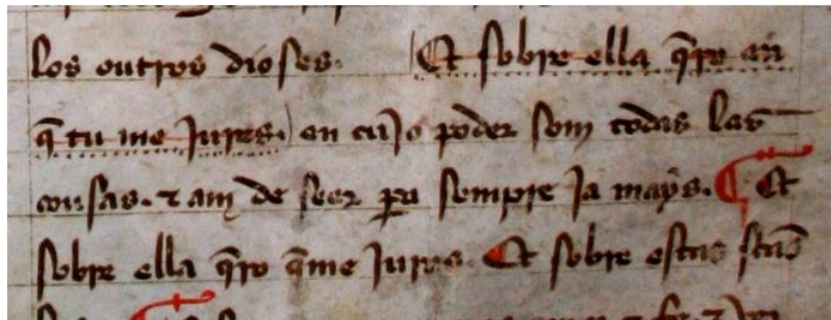 los outros dioses. Et sobre ella q̄ro en
q̄ tu me jures. en cujo poder som todas las
cousas. ⁊ am̄ de seer ꝑa sempre ja mays. ¶ Et
sobre ella q̄ro q̄me jures. Et sobre estas stās